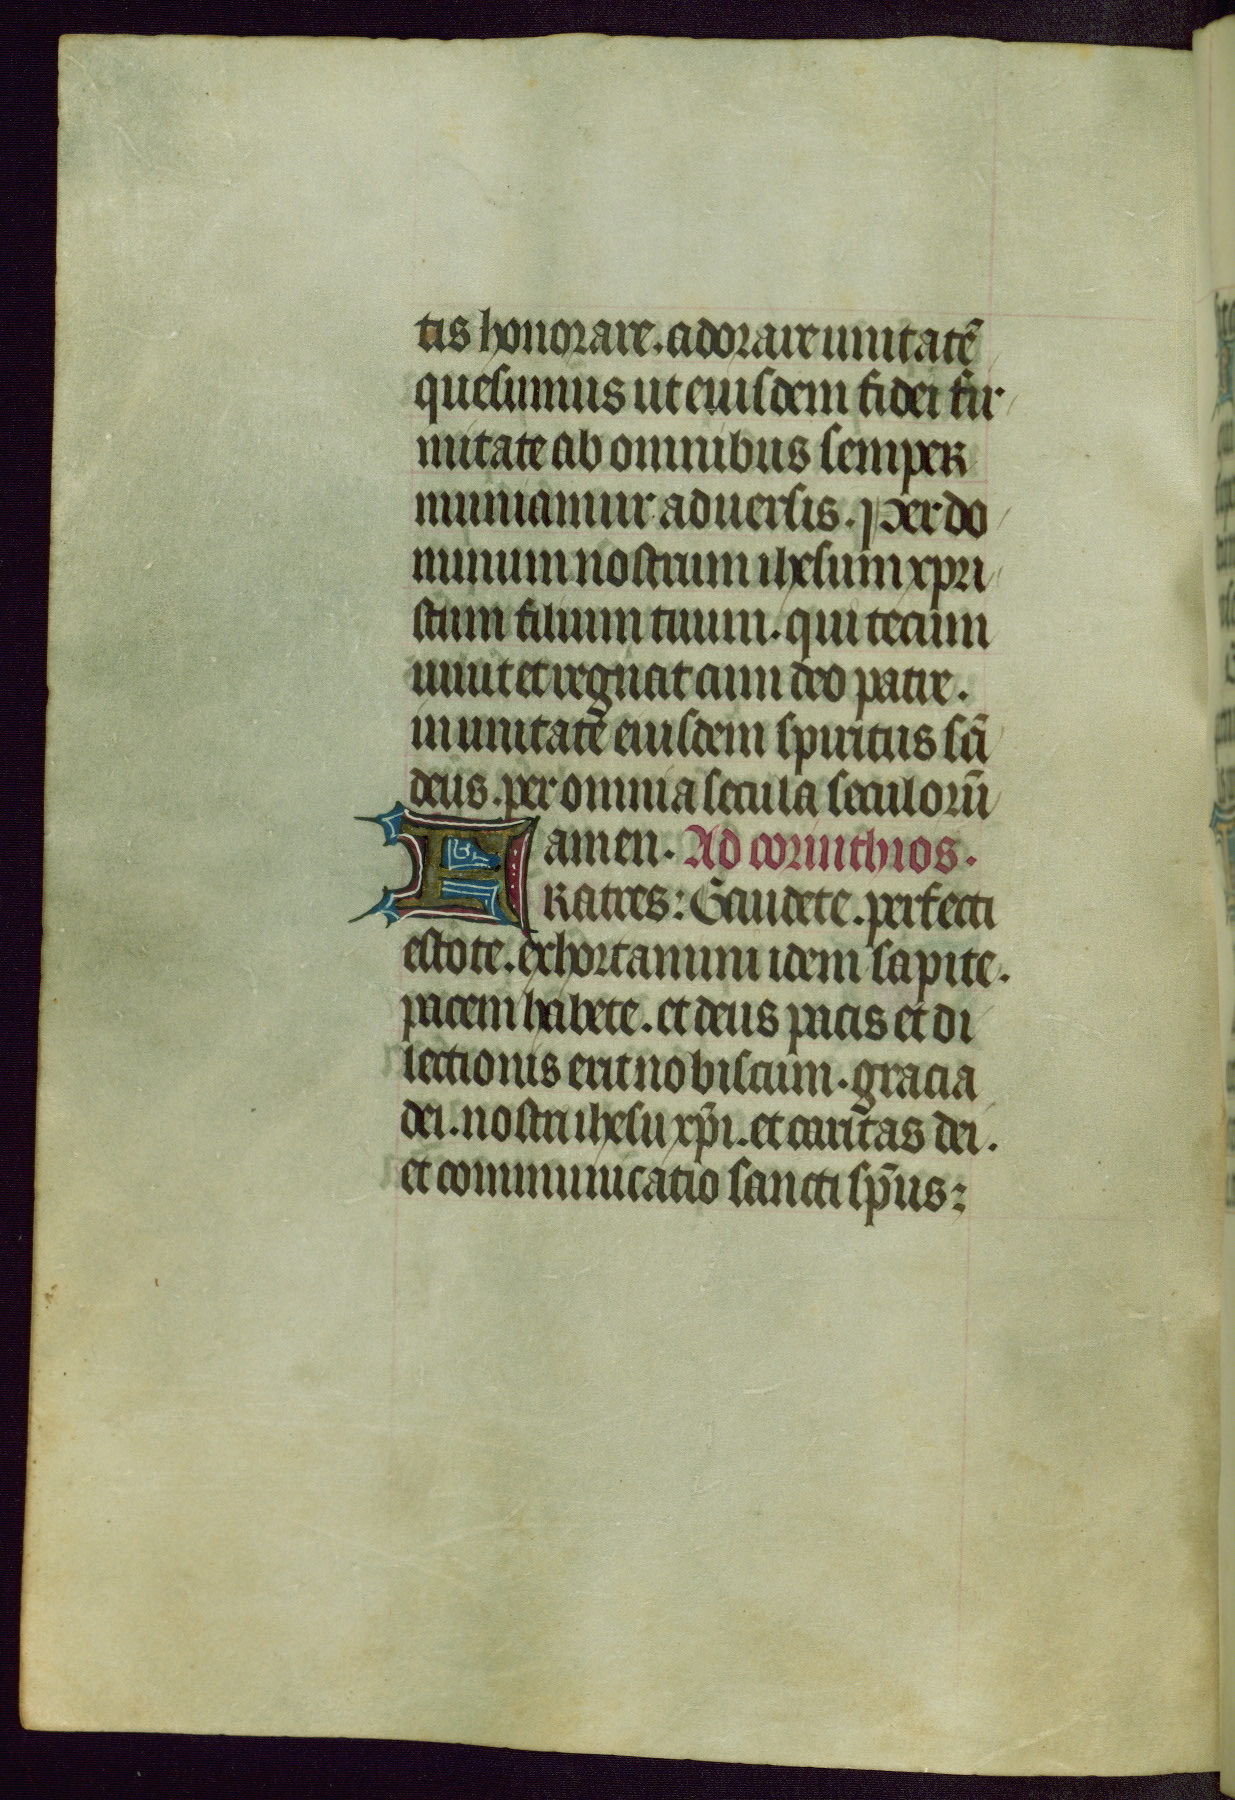 tis honorare. adorare unitatē
quesumus ut eiusdem fidei fir
mitate ab omnibus semper
muniamur aduersis. Per do
minum nostrum ihesum xpri
stum filium tuum. qui tecum
uiuit et regnat cum deo patre.
in unitatē eiusdem spiritus sc̄i
deus. per omnia secula seculorū
amen. Ad corinthios.
FRatres: Gaudete. perfecti
estote. exhortamini idem sapite.
pacem habete. et deus pacis et di
lectionis erit nobiscum. gracia
dei. nostri ihesu xp̄i. et caritas dei.
et communicatio sancti sp̄us: